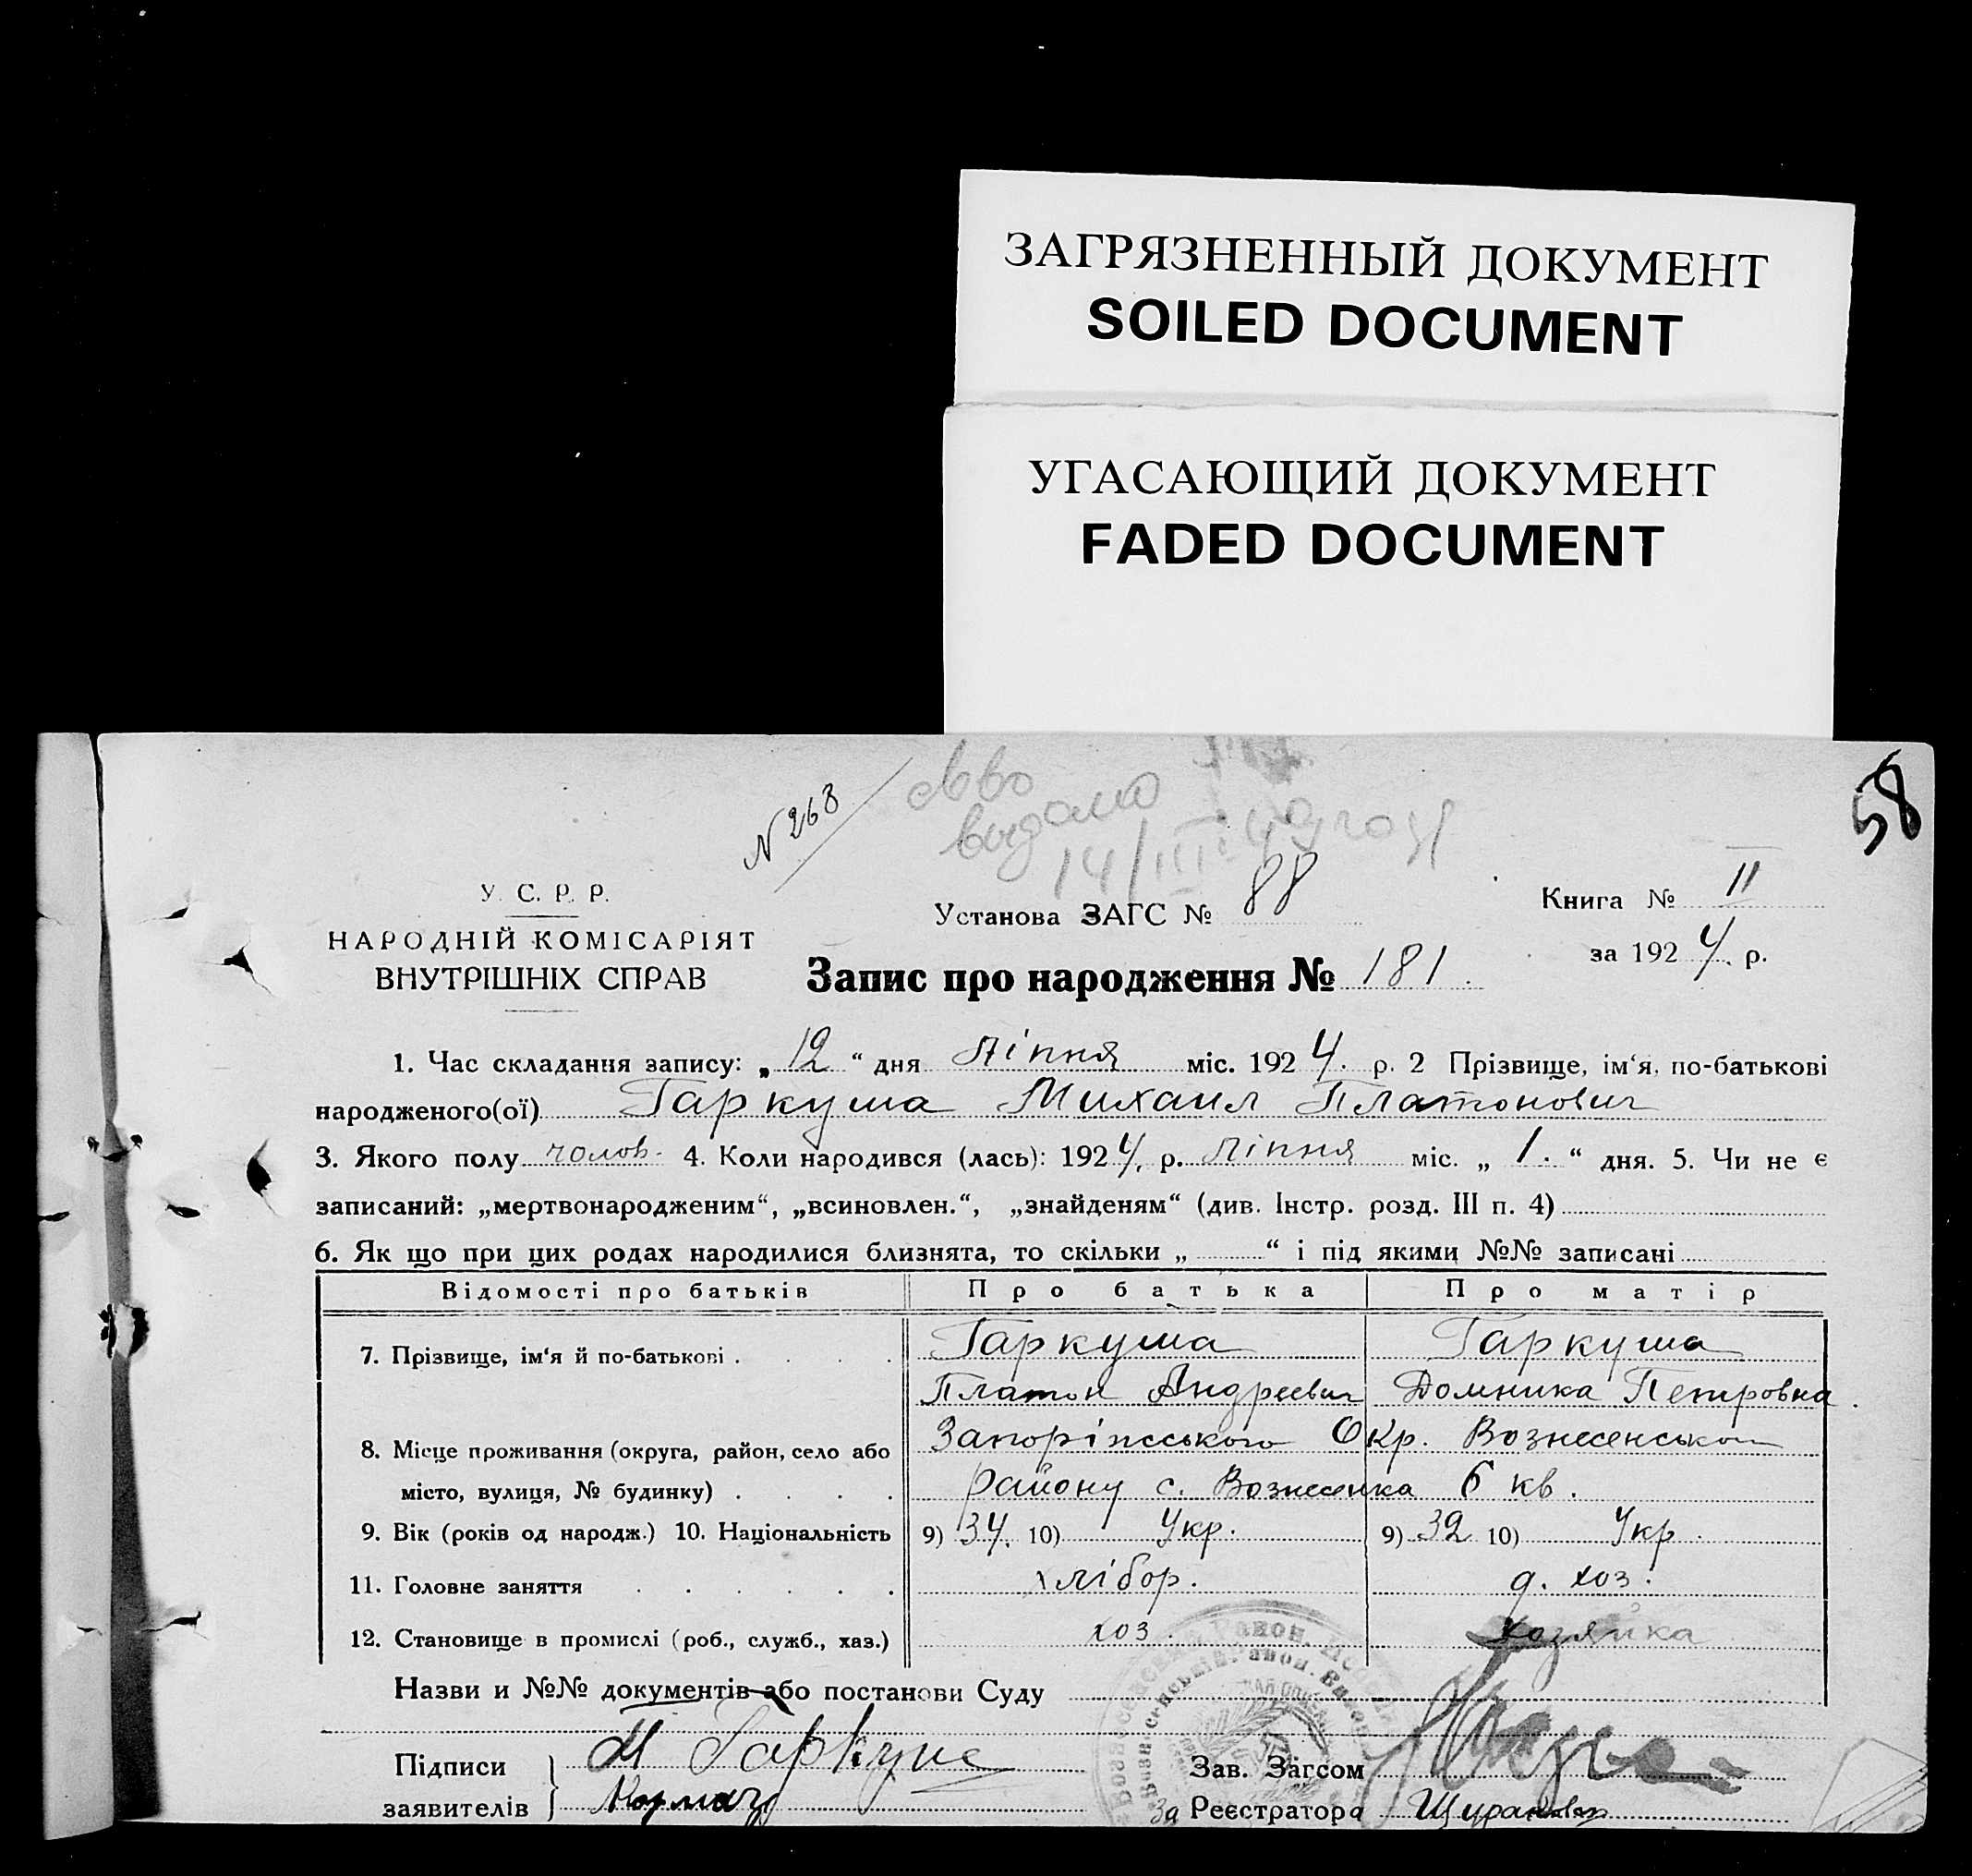 ЗАГРЯЗНЕННЫЙ ДОКУМЕНТ
SOILED DOCUMENT
УГАСАЮЩИЙ ДОКУМЕНТ
FADED DOCUMENT
58
N 268
видано
14/III 49 году
У. С. Р. Р.
НАРОДНІЙ КОМІСАРІЯТ
ВНУТРІШНІХ СПРАВ
Установа ЗАГС № 88
Книга № II
за 1924 р.
Запис про народження № 181.
1. Час складання запису: „12“ дня Ліпня міс. 1924. р. 2 Прізвище, ім‘я, по-батькові
народженого(ої) Гаркуша Михаил Платонович
3. Якого полу чолов. 4. Коли народився (лась): 1924. р. Ліпня міс. „1.“ дня. 5. Чи не є
записаний: „мертвонародженим“, „всиновлен.“, „знайденям“ (див. Інстр. розд. III п. 4)
6. Як що при цих родах народилися близнята, то скільки „ “ і під якими №№ записані
Відомості про батьків Про батька Про матір
7. Прізвище, ім‘я й по-батькові . . . . Гаркуша Гаркуша
Платон Андреевич Домника Петровна.
8. Місце проживання (округа, район, село або Запоріжського Окр. Вознесенського
місто, вулиця, № будинку) . . . . району с. Вознесенка 6 кв.
9. Вік (років од народж.) 10. Національність 9) 34. 10) Укр. 9) 32 10) Укр.
11. Головне заняття . . . . . . хлібор. д. хоз.
12. Становище в промислі (роб., служб., хаз.) хоз. хозяйка
Назви и №№ документів або постанови Суду
Підписи М Гаркуша Зав. Загсом
заявителів За Реєстратора